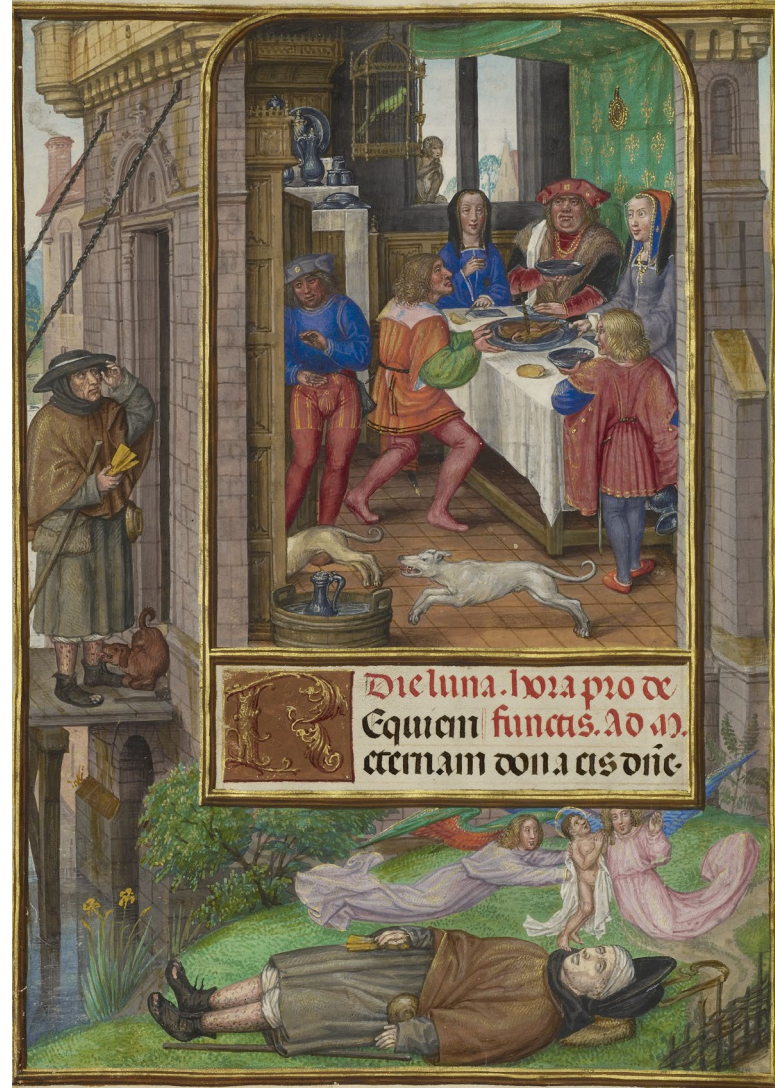 Die luna. hora pro de
REquiem functis. Ad M.
eternam dona eis dn̄e.